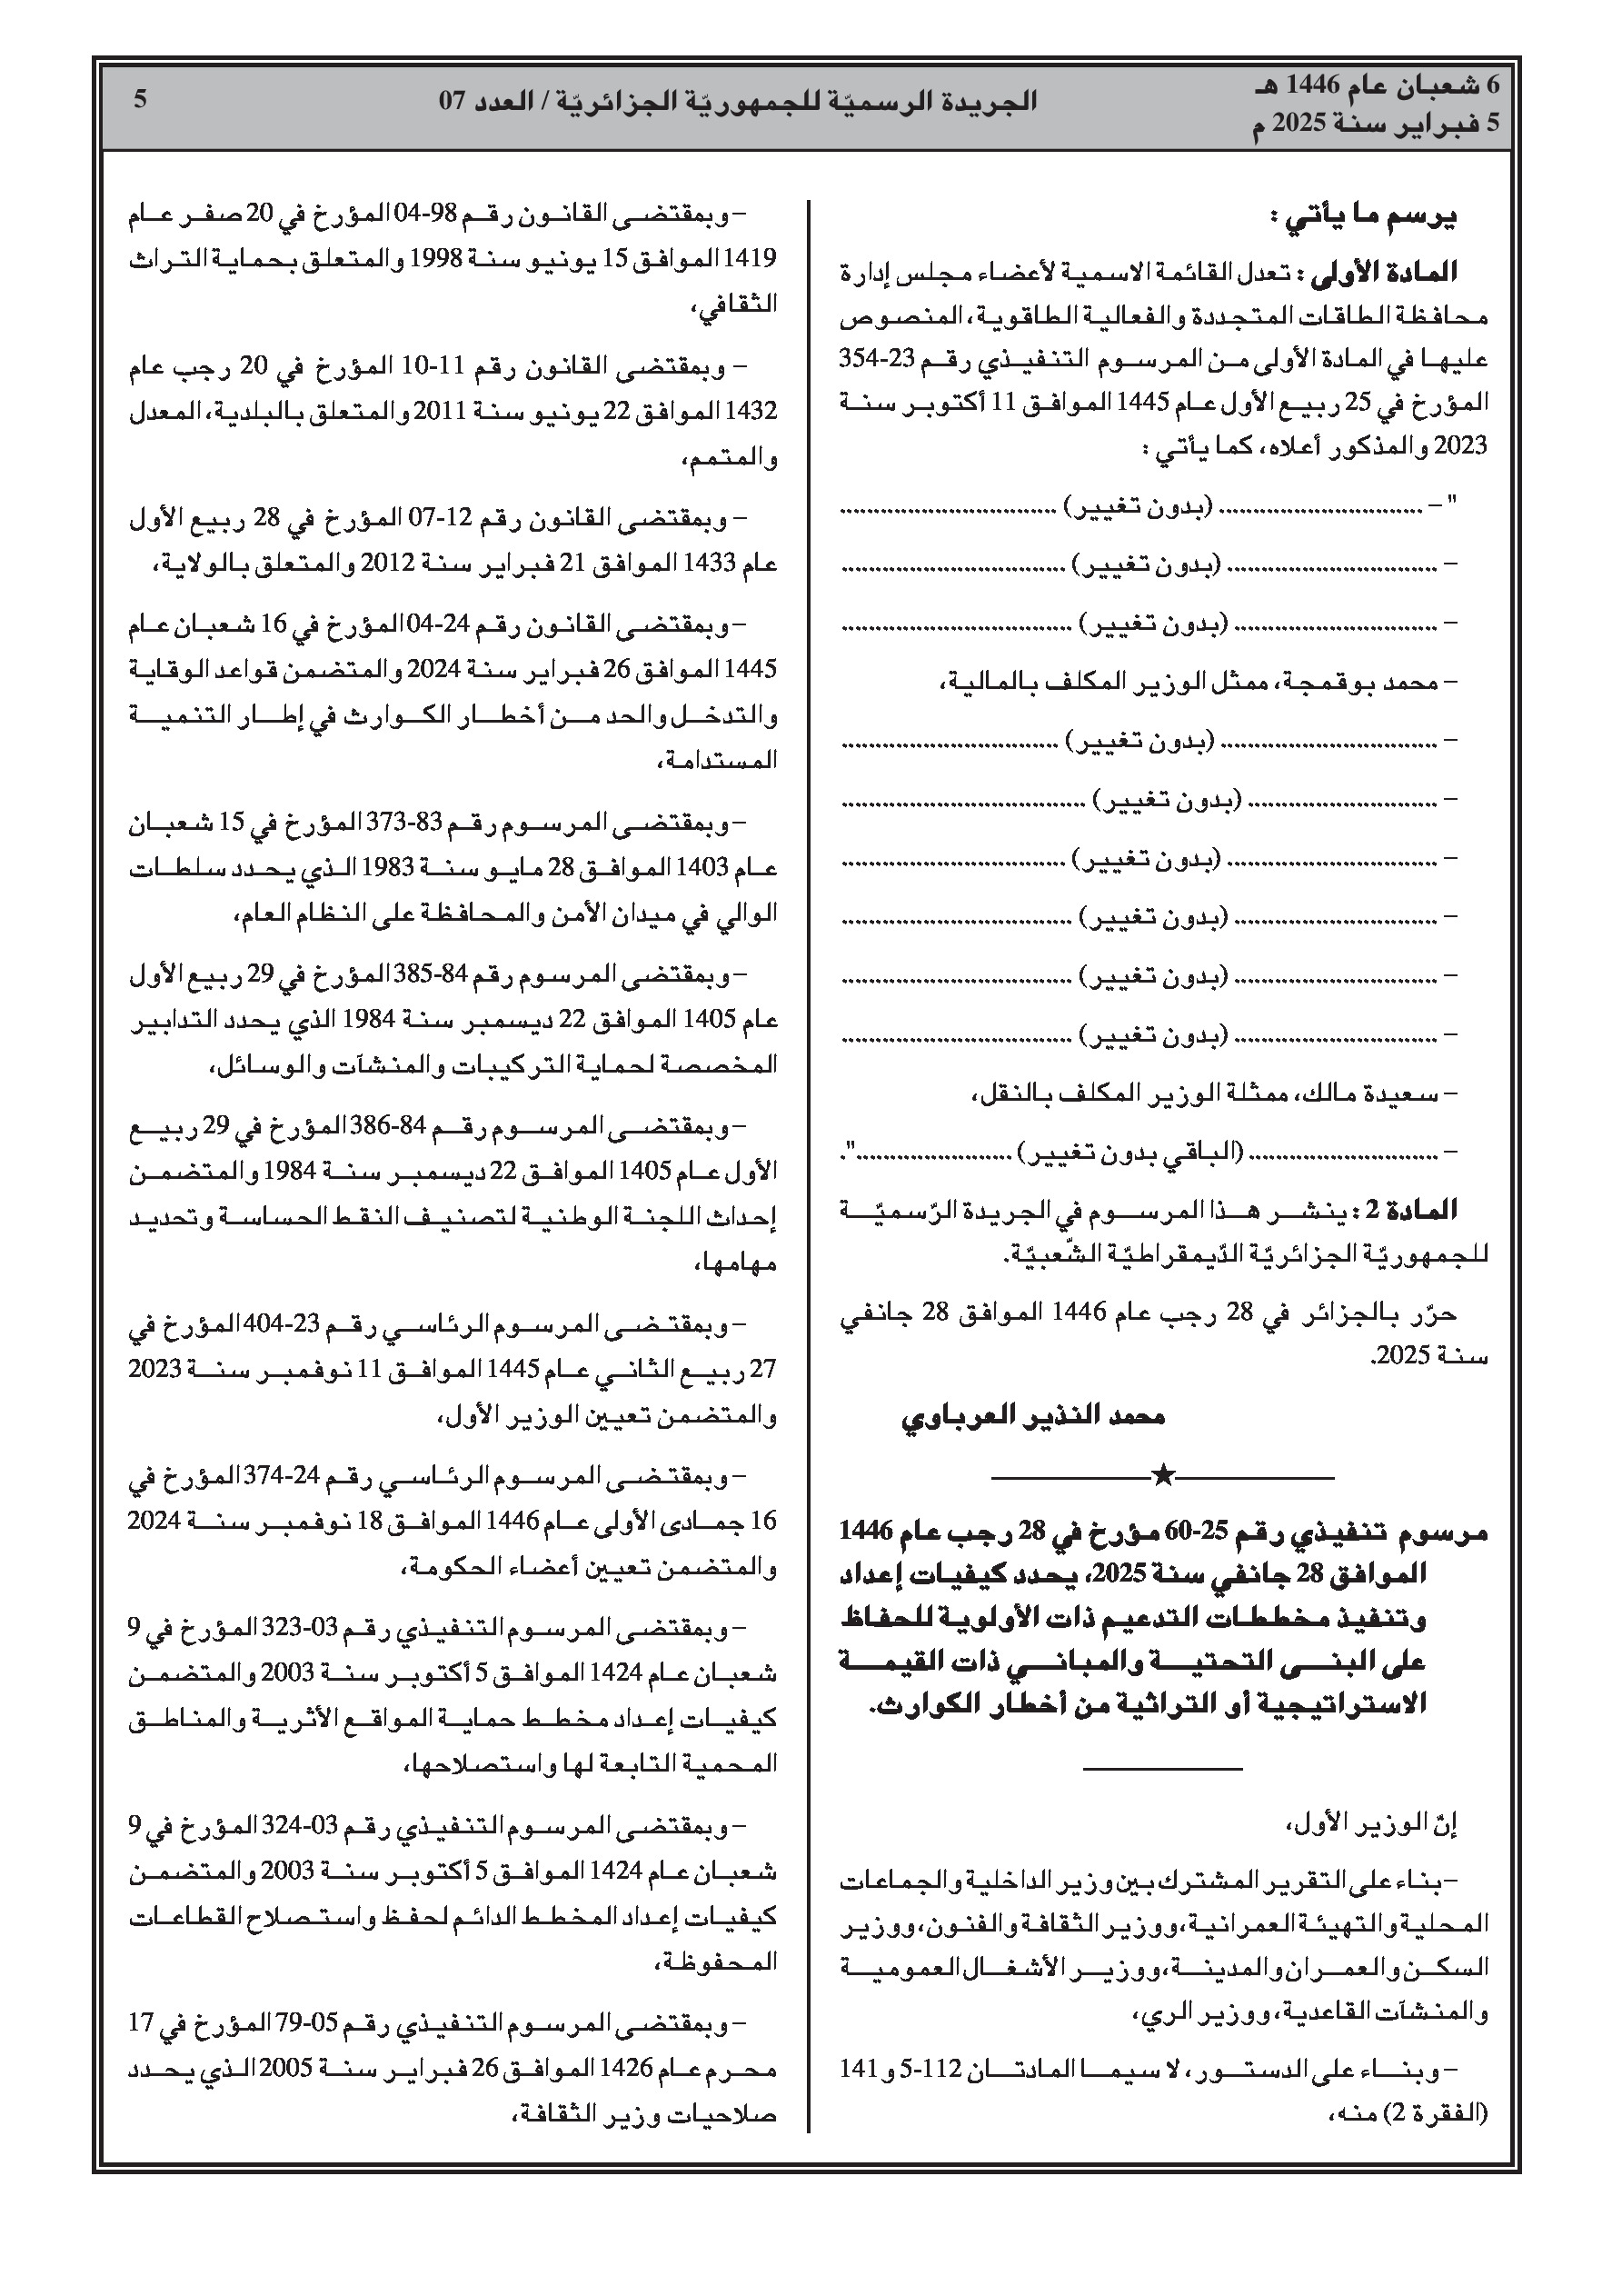 6 شعبان عام 1446 هـ
5 فبراير سنة 2025 م
الجريدة الرسميّة للجمهوريّة الجزائريّة / العدد 07
5
يرسم ما يأتي :
المادة الأولى : تعدل القائمة الاسمية لأعضاء مجلس إدارة
محافظة الطاقات المتجددة والفعالية الطاقوية، المنصوص
عليها في المادة الأولى من المرسوم التنفيذي رقم 23-354
المؤرخ في 25 ربيع الأول عام 1445 الموافق 11 أكتوبر سنة
2023 والمذكور أعلاه، كما يأتي :
" – .............................. (بدون تغيير) ................................
– ............................... (بدون تغيير) .................................
– .............................. (بدون تغيير) ..................................
– محمد بوقمجة، ممثل الوزير المكلف بالمالية،
– ................................ (بدون تغيير) ................................
– ............................ (بدون تغيير) ....................................
– ............................... (بدون تغيير) .................................
– .............................. (بدون تغيير) ..................................
– .............................. (بدون تغيير) ..................................
– .............................. (بدون تغيير) ..................................
– سعيدة مالك، ممثلة الوزير المكلف بالنقل،
– ............................ (الباقي بدون تغيير) .......................".
المادة 2 : ينشر هذا المرسوم في الجريدة الرّسميّة
للجمهوريّة الجزائريّة الدّيمقراطيّة الشّعبيّة.
حرّر بالجزائر في 28 رجب عام 1446 الموافق 28 جانفي
سنة 2025.
محمد النذير العرباوي
مرسوم تنفيذي رقم 25-60 مؤرخ في 28 رجب عام 1446
الموافق 28 جانفي سنة 2025، يحدد كيفيات إعداد
وتنفيذ مخططات التدعيم ذات الأولوية للحفاظ
على البنى التحتية والمباني ذات القيمة
الاستراتيجية أو التراثية من أخطار الكوارث.
إنّ الوزير الأول،
– بناء على التقرير المشترك بين وزير الداخلية والجماعات
المحلية والتهيئة العمرانية، ووزير الثقافة والفنون، ووزير
السكن والعمران والمدينة، ووزير الأشغال العمومية
والمنشآت القاعدية، ووزير الري،
– وبناء على الدستور، لا سيما المادتان 112-5 و141
(الفقرة 2) منه،
– وبمقتضى القانون رقم 98-04 المؤرخ في 20 صفر عام
1419 الموافق 15 يونيو سنة 1998 والمتعلق بحماية التراث
الثقافي،
– وبمقتضى القانون رقم 11-10 المؤرخ في 20 رجب عام
1432 الموافق 22 يونيو سنة 2011 والمتعلق بالبلدية، المعدل
والمتمم،
– وبمقتضى القانون رقم 12-07 المؤرخ في 28 ربيع الأول
عام 1433 الموافق 21 فبراير سنة 2012 والمتعلق بالولاية،
– وبمقتضى القانون رقم 24-04 المؤرخ في 16 شعبان عام
1445 الموافق 26 فبراير سنة 2024 والمتضمن قواعد الوقاية
والتدخل والحد من أخطار الكوارث في إطار التنمية
المستدامة،
– وبمقتضى المرسوم رقم 83-373 المؤرخ في 15 شعبان
عام 1403 الموافق 28 مايو سنة 1983 الذي يحدد سلطات
الوالي في ميدان الأمن والمحافظة على النظام العام،
– وبمقتضى المرسوم رقم 84-385 المؤرخ في 29 ربيع الأول
عام 1405 الموافق 22 ديسمبر سنة 1984 الذي يحدد التدابير
المخصصة لحماية التركيبات والمنشآت والوسائل،
– وبمقتضى المرسوم رقم 84-386 المؤرخ في 29 ربيع
الأول عام 1405 الموافق 22 ديسمبر سنة 1984 والمتضمن
إحداث اللجنة الوطنية لتصنيف النقط الحساسة وتحديد
مهامها،
– وبمقتضى المرسوم الرئاسي رقم 23-404 المؤرخ في
27 ربيع الثاني عام 1445 الموافق 11 نوفمبر سنة 2023
والمتضمن تعيين الوزير الأول،
– وبمقتضى المرسوم الرئاسي رقم 24-374 المؤرخ في
16 جمادى الأولى عام 1446 الموافق 18 نوفمبر سنة 2024
والمتضمن تعيين أعضاء الحكومة،
– وبمقتضى المرسوم التنفيذي رقم 03-323 المؤرخ في 9
شعبان عام 1424 الموافق 5 أكتوبر سنة 2003 والمتضمن
كيفيات إعداد مخطط حماية المواقع الأثرية والمناطق
المحمية التابعة لها واستصلاحها،
– وبمقتضى المرسوم التنفيذي رقم 03-324 المؤرخ في 9
شعبان عام 1424 الموافق 5 أكتوبر سنة 2003 والمتضمن
كيفيات إعداد المخطط الدائم لحفظ واستصلاح القطاعات
المحفوظة،
– وبمقتضى المرسوم التنفيذي رقم 05-79 المؤرخ في 17
محرم عام 1426 الموافق 26 فبراير سنة 2005 الذي يحدد
صلاحيات وزير الثقافة،